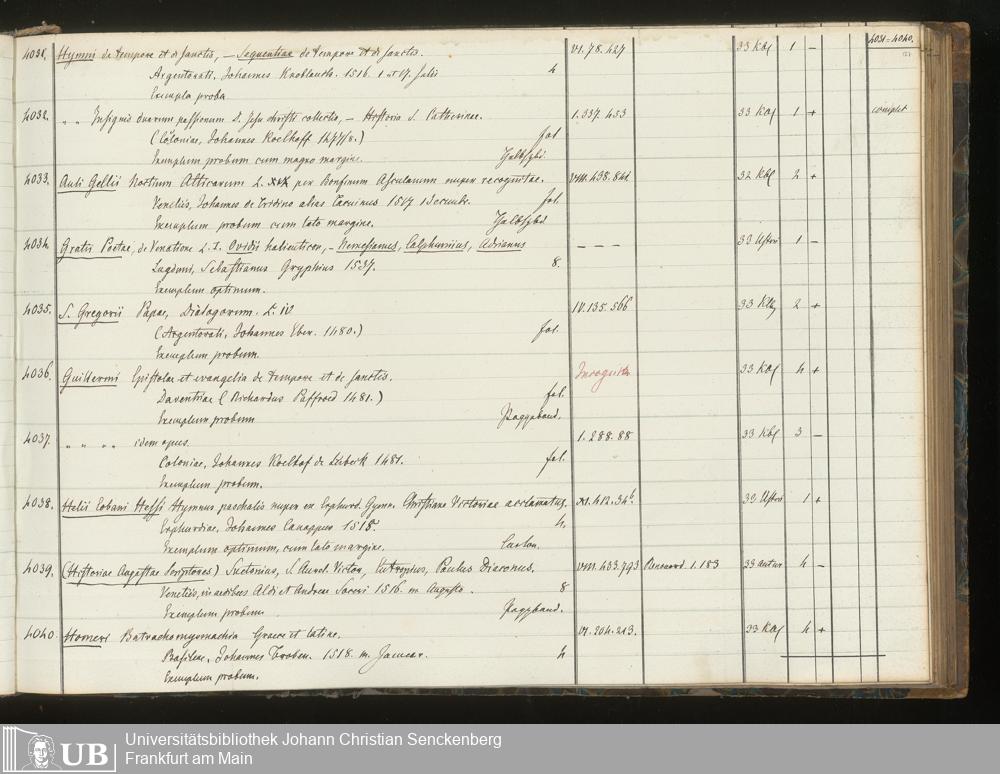 4031. Hymni de tempore et de sanctis, – Sequentiae de tempore et de sanctis. VI. 78. 427 33 Kbf 1 – 4031–4040.
Argentorati, Johannes Knoblauch. 1516. 1 ut 17. Julii 4
Exempla proba
4032. " " Insignis duarum passionum D. Jesu christi collectio, – Historia S. Catherinae. 1. 337. 453 33 Kbf 1 + complet
(Coloniae, Johannes Koelhoff 1477/8.) fol.
Exemplum probum cum magno margine. Halbfzbd.
4033. Auli Gellii Noctium Atticarum L. XIX per Bonfinum Asculanum nuper recognitae. VIII. 438. 841 32 Kbf 2 +
Venetiis, Johannes de Tridino alias Tacuinus 1517 Decembr. fol.
Exemplum probum cum lato margine. Halbfzbd
4034. Gratii Poetae, de Venatione L. I. Ovidii halieuticon, – Nemesianus, Calphurnius, Adrianus – – – 33 1 –
Lugduni, Sebastianus Gryphius 1537. 8.
Exemplum optimum.
4035. S. Gregorii Papae, Dialogorum. L. IV IV. 135. 566 33 2 +
(Argentorati, Johannes Eber. 1480.) fol.
Exemplum probum
4036. Guillermi Epistolae et evangelia de tempore et de sanctis. Incognita 33 Kbf 4 +
Daventriae (Richardus Paffroed 1481.) fol.
Exemplum probum Pappband.
4037. " " " " idem opus. 1. 288. 88 33 Kbf 3 –
Coloniae, Johannes Koelhof de Lubeck 1481. fol.
Exemplum probum.
4038. Helii Eobani Hessi Hymnus paschalis nuper ex Erphurd. Gymn. Christiane Victoriae acclamatus. XI. 412. 34b. 33 1 +
Erphurdiae, Johannes Canappus 1515. 4.
Exemplum optimum, cum lato margine. Carton.
4039. (Historiae Augustae Scriptores) Suetonius, S. Aurel. Victor, Eutropius, Paulus Diaconus. VIII. 433. 793 Renouard 1. 183 33 4 –
Venetiis, in aedibus Aldi et Andreae Soceri 1516. m Augusto. 8
Exemplum probum Pappband.
4040. Homeri Batrachomyomachia Graece et latine. VI. 204. 213. 33 Kbf 4 +
Basileae, Johannes Froben. 1518. m. Januar. 4
Exemplum probum.
UB Universitätsbibliothek Johann Christian Senckenberg
Frankfurt am Main